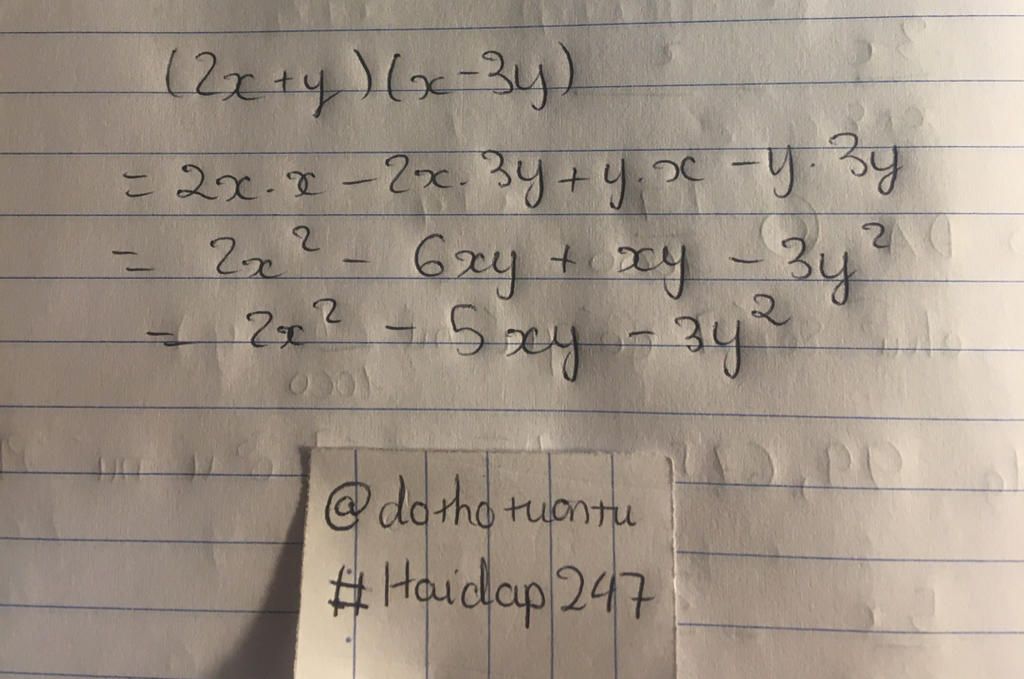 (2x+y)(x-3y)
= 2x.x - 2x.3y + y.x - y.3y
= 2x² - 6xy + xy - 3y²
= 2x² - 5xy - 3y²
@dothotuontu
#Hoidap247